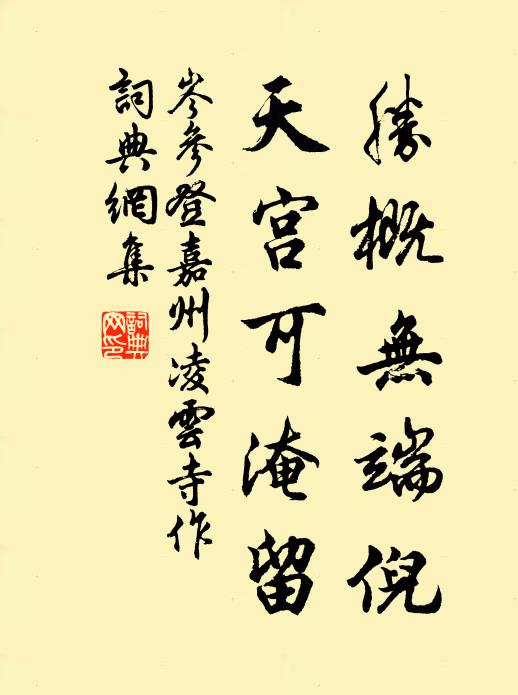 勝概無端倪
天宮可淹留
岑參登嘉州凌雲寺作
詞典網集
詞典
网印